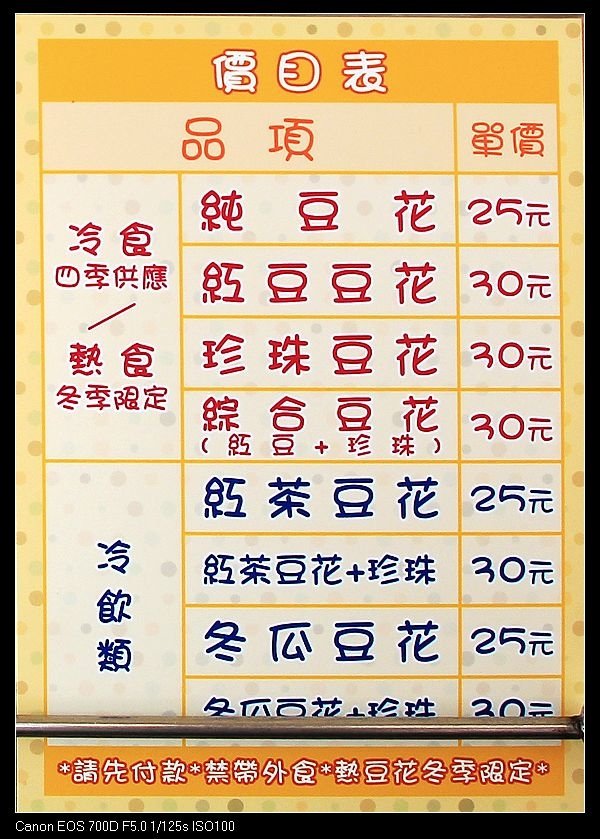 價目表
品項 單價
冷食
四季供應
／
熱食
冬季限定
純豆花 25元
紅豆豆花 30元
珍珠豆花 30元
綜合豆花
(紅豆+珍珠) 30元
冷飲類
紅茶豆花 25元
紅茶豆花+珍珠 30元
冬瓜豆花 25元
冬瓜豆花+珍珠 30元
*請先付款*禁帶外食*熱豆花冬季限定*
Canon EOS 700D F5.0 1/125s ISO100